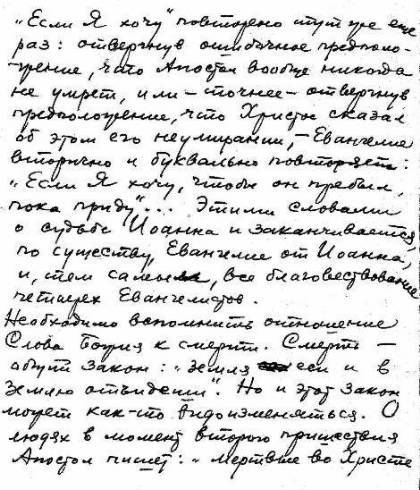 „Если Я хочу" повторено тут уже еще
раз: отвергнув ошибочное предполо-
жение, что Апостол вообще никогда
не умрет, или – точнее – отвергнув
предположение, что Христос сказал
об этом его неумирании, – Евангелие
вторично и буквально повторяет:
„Если Я хочу, чтобы он пребыл,
пока приду"... Этими словами
о судьбе Иоанна и заканчивается,
по существу, Евангелие от Иоанна
и, тем самым, все благовествование
четырех Евангелистов.
Необходимо вспомнить отношение
Слова Божия к смерти. Смерть –
общий закон: „земля еси и в
землю отъидеши". Но и этот закон
может как-то видоизменяться. О
людях в момент второго пришествия
Апостол пишет: „мертвые во Христе